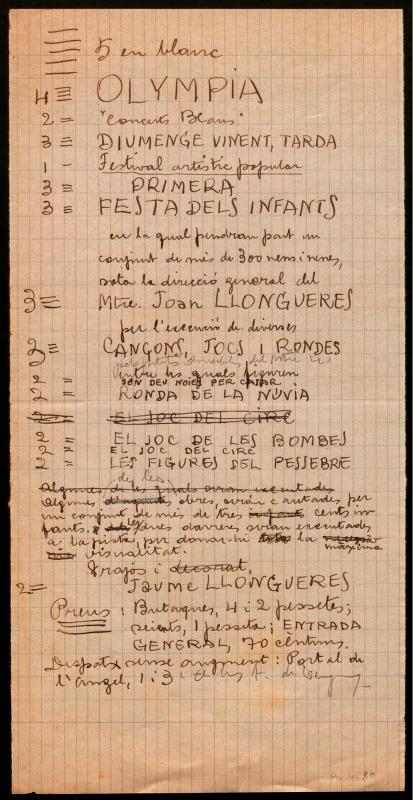 5 en blanc
4 ≡ OLYMPIA
2 = "Concerts Blaus"
3 ≡ DIUMENGE VINENT, TARDA
1 - Festival artístic popular
3 ≡ PRIMERA
3 ≡ FESTA DELS INFANTS
en la qual pendran part un
conjunt de més de 300 nens i nenes,
sota la direcció general del
3 ≡ Mtre. Joan LLONGUERES
per l'execució de diverses
3 ≡ CANÇONS, JOCS I RONDES
entre les quals figuren
2 = SON DEU NOIES PER CASAR
2 = RONDA DE LA NÚVIA
2 = EL JOC DEL CIRC
2 = EL JOC DE LES BOMBES
2 = EL JOC DEL CIRC
2 = LES FIGURES DEL PESSEBRE
Algunes, de les quals seran executades
Algunes d'aquestes obres, seran cantades per
un conjunt de més de tres cents in-
fants. les darreres seran executades
a la pista, per donar-hi la màxima
visualitat.
Trajos i decorat,
2 = JAUME LLONGUERES
Preus: Butaques, 4 i 2 pessetes;
seients, 1 pesseta; ENTRADA
GENERAL, 70 cèntims.
Despatx sense augment: Portal de
l'Angel, 1 i 3